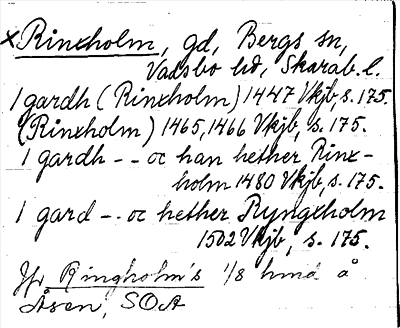 × Rinxholm, gd, Bergs sn,
Vadsbo hd, Skarab. l.
1 gardh (Rinxholm) 1447 Vkjb, s. 175.
(Rinxholm) 1465, 1466 Vkjb, s. 175.
1 gardh - - oc han hether Rinx-
holm 1480 Vkjb, s. 175.
1 gard - - oc hether Ryngxholm
1502 Vkjb, s. 175.
Jfr Ringholm's 1/8 hmd å
Åsen, SOA